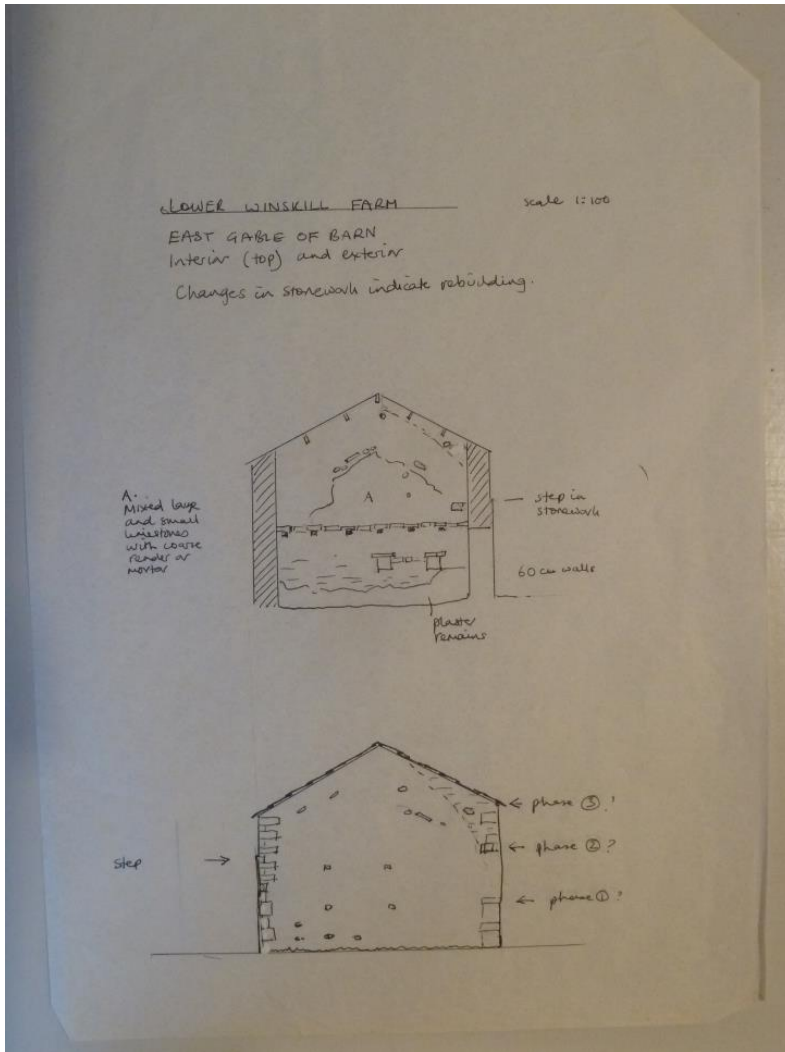 LOWER WINSKILL FARM
scale 1:100
EAST GABLE OF BARN
Interior (top) and exterior
Changes in stonework indicate rebuilding.
A.
Mixed large
and small
limestones
with coarse
render or
mortar
A
step in
stonework
60 cm walls
plaster
remains
phase ③?
phase ②?
step
phase ①?